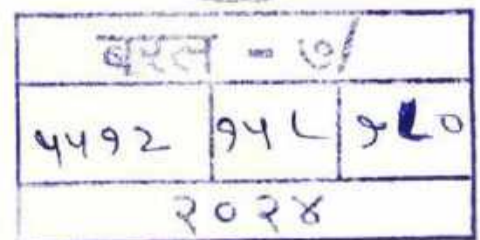 बरल - ७/
५५१२ १५८ १८०
२०२४